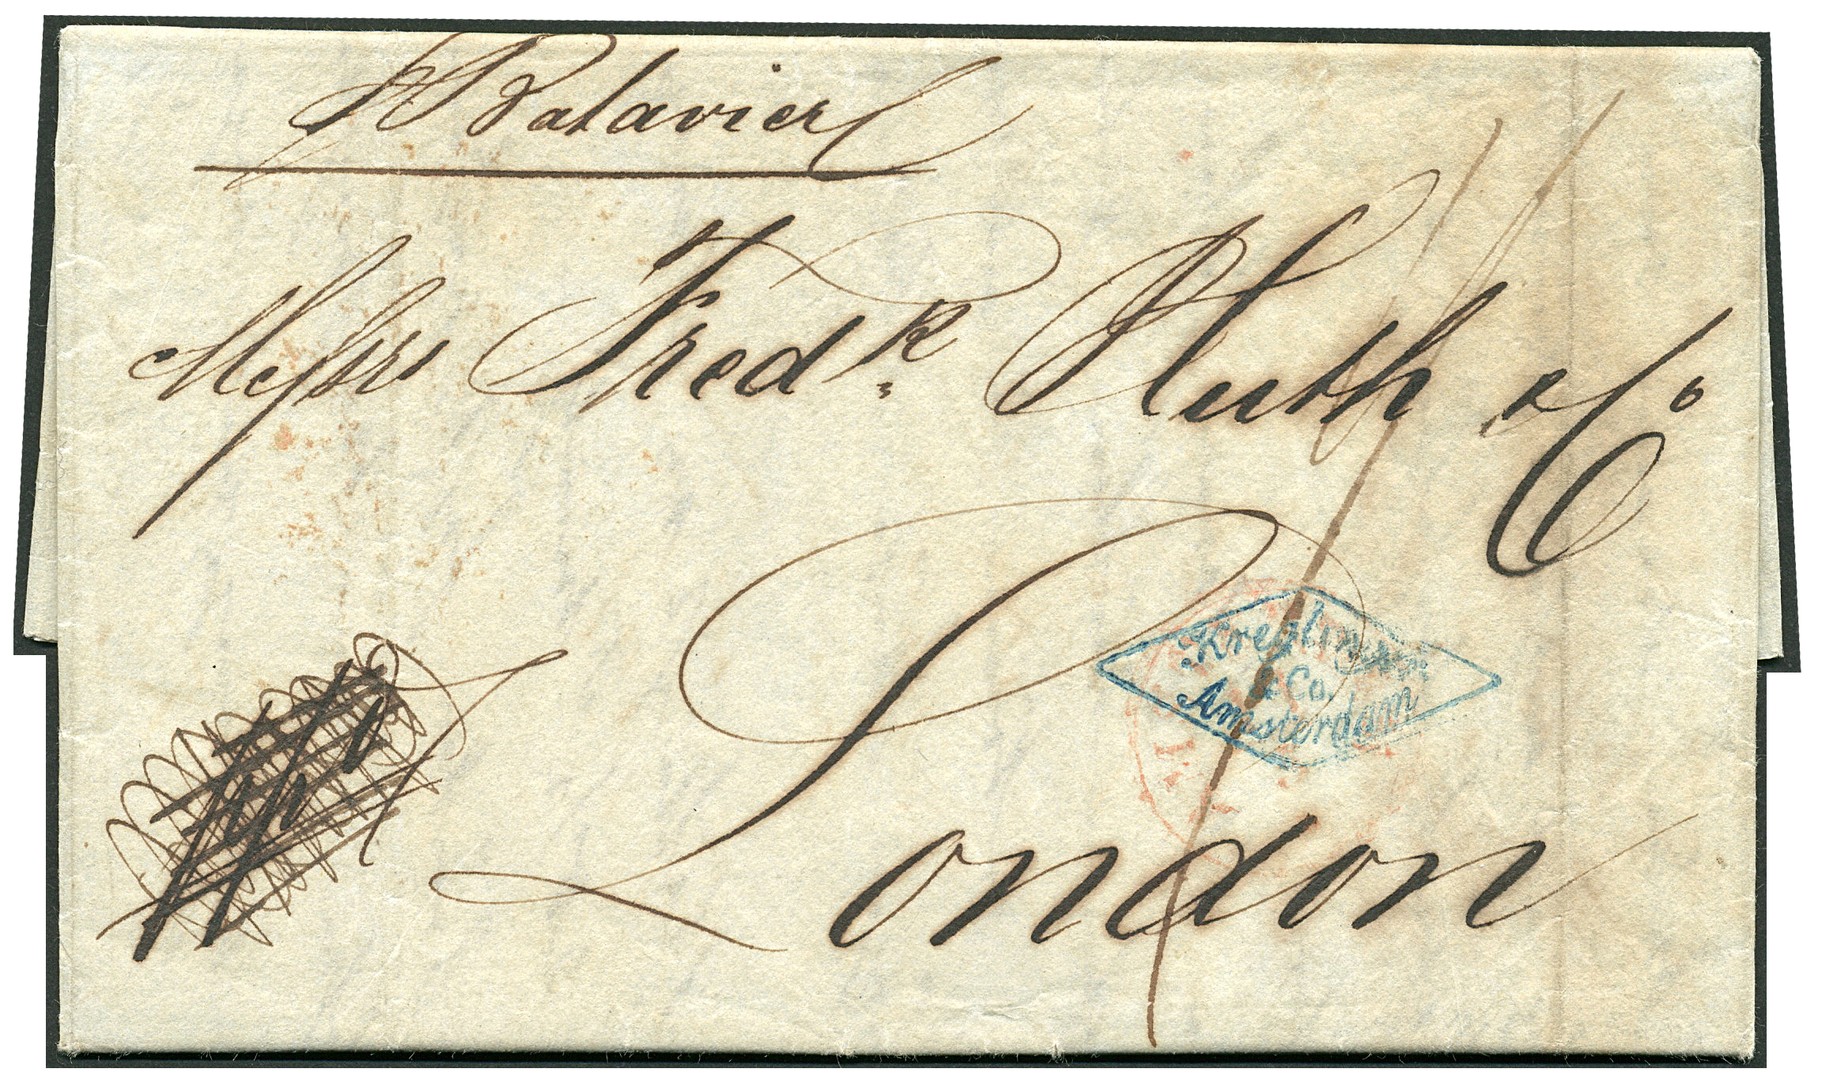 p Batavier
Messrs Fredk. Huth & Co
London
Kreglinger
& Co.
Amsterdam